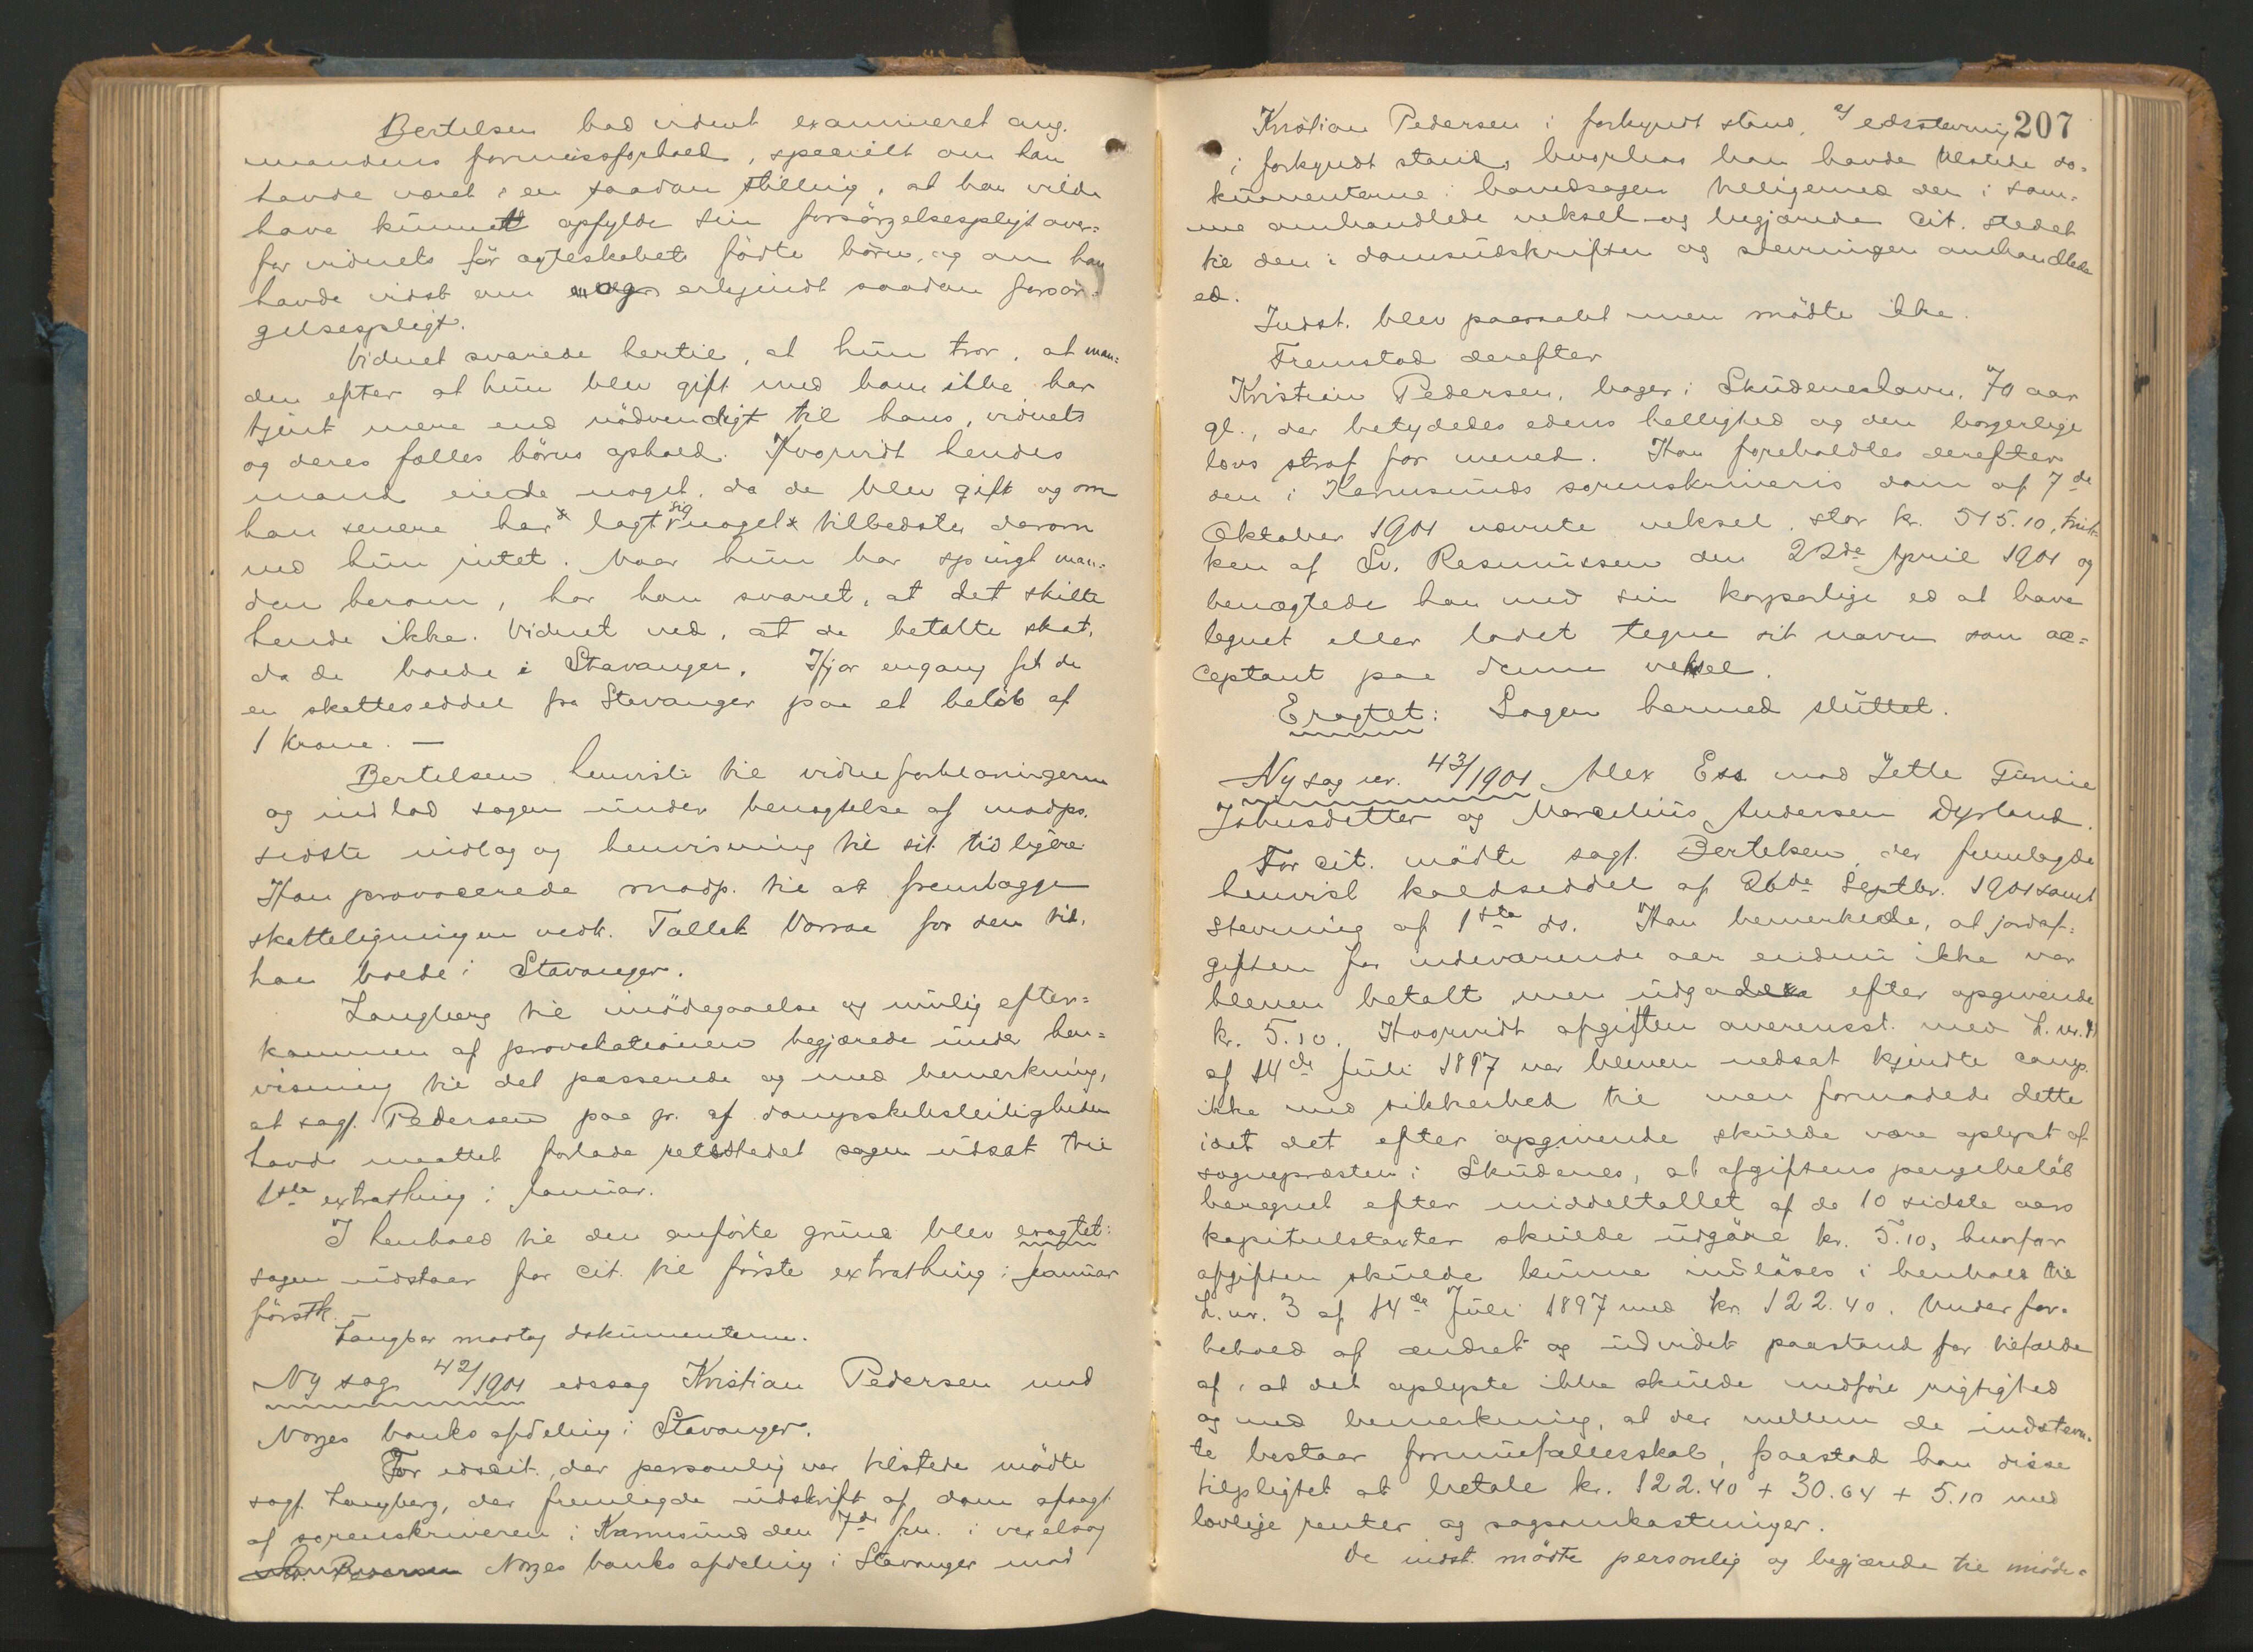 Bertelsen bad vidnet examineret ang.
mandens formuesforhold, specielt om han
havde været i en saadan stilling, at han vilde
have kunnet opfylde sin forsörgelsespligt over=
for vidnets för ægteskabet födte börn, og om han
havde vidst om og erkjendt saadan forsör=
gelsespligt.
Vidnet svarede hertil, at hun tror, at man=
den efter at hun blev gift med ham ikke har
tjent mere end nödvendigt til hans, vidnets
og deres fælles börns ophold. Hvorvidt hendes
mand eiede noget, da de blev gift og om
han senere har lagt sig noget tilbedste, derom
ved hun intet. Naar hun har spurgt man=
den herom, har han svaret, at det skilte
hende ikke. Vidnet ved, at de betalte skat,
da de boede i Stavanger. Ifjor engang fik de
en skatteseddel fra Stavanger paa et belöb af
1 krone. —
Bertelsen henviste til vidneforklaringerne
og indlod sagen under benegtelse af modps.
sidste indlæg og henvisning til sit tidligere.
Han provocerede modp. til at fremlægge
skatteligningen vedk. Tallek Vorraa for den tid,
han boede i Stavanger.
Langberg til imödegaaelse og mulig efter=
kommen af provokationen begjærede under hen=
visning til det passerede og med bemerkning,
at sagf. Pedersen paa gr. af dampskibsleiligheden
havde maattet forlade retsstedet sagen udsat til
1ste extrathing i Januar.
I henhold til den anförte grund blev eragtet:
sagen udstaar for cit. til förste extrathing i januar
förstk. —
Langber modtog dokumenterne.
Ny sag 42/1901 edssag Kristian Pedersen mod
Norges banks afdeling i Stavanger.
For edscit., der personlig var tilstede mödte
sagf. Langberg, der fremlagde udskrift af dom afsagt
af sorenskriveren i Karmsund den 7de fm. i vexelsag
Norges banks afdeling i Stavanger mod
207
Kristian Pedersen i forkyndt stand, edsstevning
i forkyndt stand, hvorhos han havde tilstede do=
kumenterne i hovedsagen tilligemed den i sam=
me omhandlede veksel og begjærede cit. stedet
til den i domsudskriften og stevningen omhandlede
ed.
Indst. blev paaraabt men mödte ikke.
Fremstod derefter
Kristian Pedersen, bager i Skudeneshavn, 70 aar
gl., der betydedes edens hellighed og den borgerlige
lovs straf for mened. Han foreholdtes derefter
den i Karmsunds sorenskriveris dom af 7de
Oktober 1901 nævnte veksel, stor kr. 515.10, truk=
ken af Sv. Rasmussen den 22de April 1901 og
benægtede han med sin korporlige ed at have
tegnet eller ladet tegne sit navn som ac=
ceptant paa denne veksel.
Eragtet: Sagen hermed sluttet.
Ny sag nr. 43/1901 Alex Ess mod Jette Tomine
Johnsdetter og Marcelius Andersen Dyrland.
For cit. mödte sagf. Bertelsen, der fremlagde
henvist kaldseddel af 26de Septbr. 1901 samt
stevning af 1ste ds. Han bemerkede, at jordaf=
giften for indeværende aar endnu ikke var
bleven betalt, men udgör efter opgivende
kr. 5.10. Hvorvidt afgiften overensst. med L. nr. 3
af 14de Juli 1897 var bleven nedsat kjendte comp.
ikke med sikkerhed til men formodede dette
idet det efter opgivende skulde være oplyst af
sognepræsten i Skudenes, at afgiftens pengebelöb
beregnet efter middeltallet af de 10 sidste aars
kapitulstakster skulde udgöre kr. 5.10, hvorfor
afgiften skulde kunne indlöses i henhold til
L. nr. 3 af 14de Juli 1897 med kr. 122.40. Under for=
behold af ændret og udvidet paastand for tilfælde
af, at det oplyste ikke skulde medföre rigtighed
og med bemerkning, at der mellem de indstevn=
te bestaar formuefællesskab, paastod han disse
tilpligtet at betale kr. 122.40 + 30.64 + 5.10 med
lovlige renter og sagsomkostninger.
De indst. mödte personlig og begjærede til imöde=